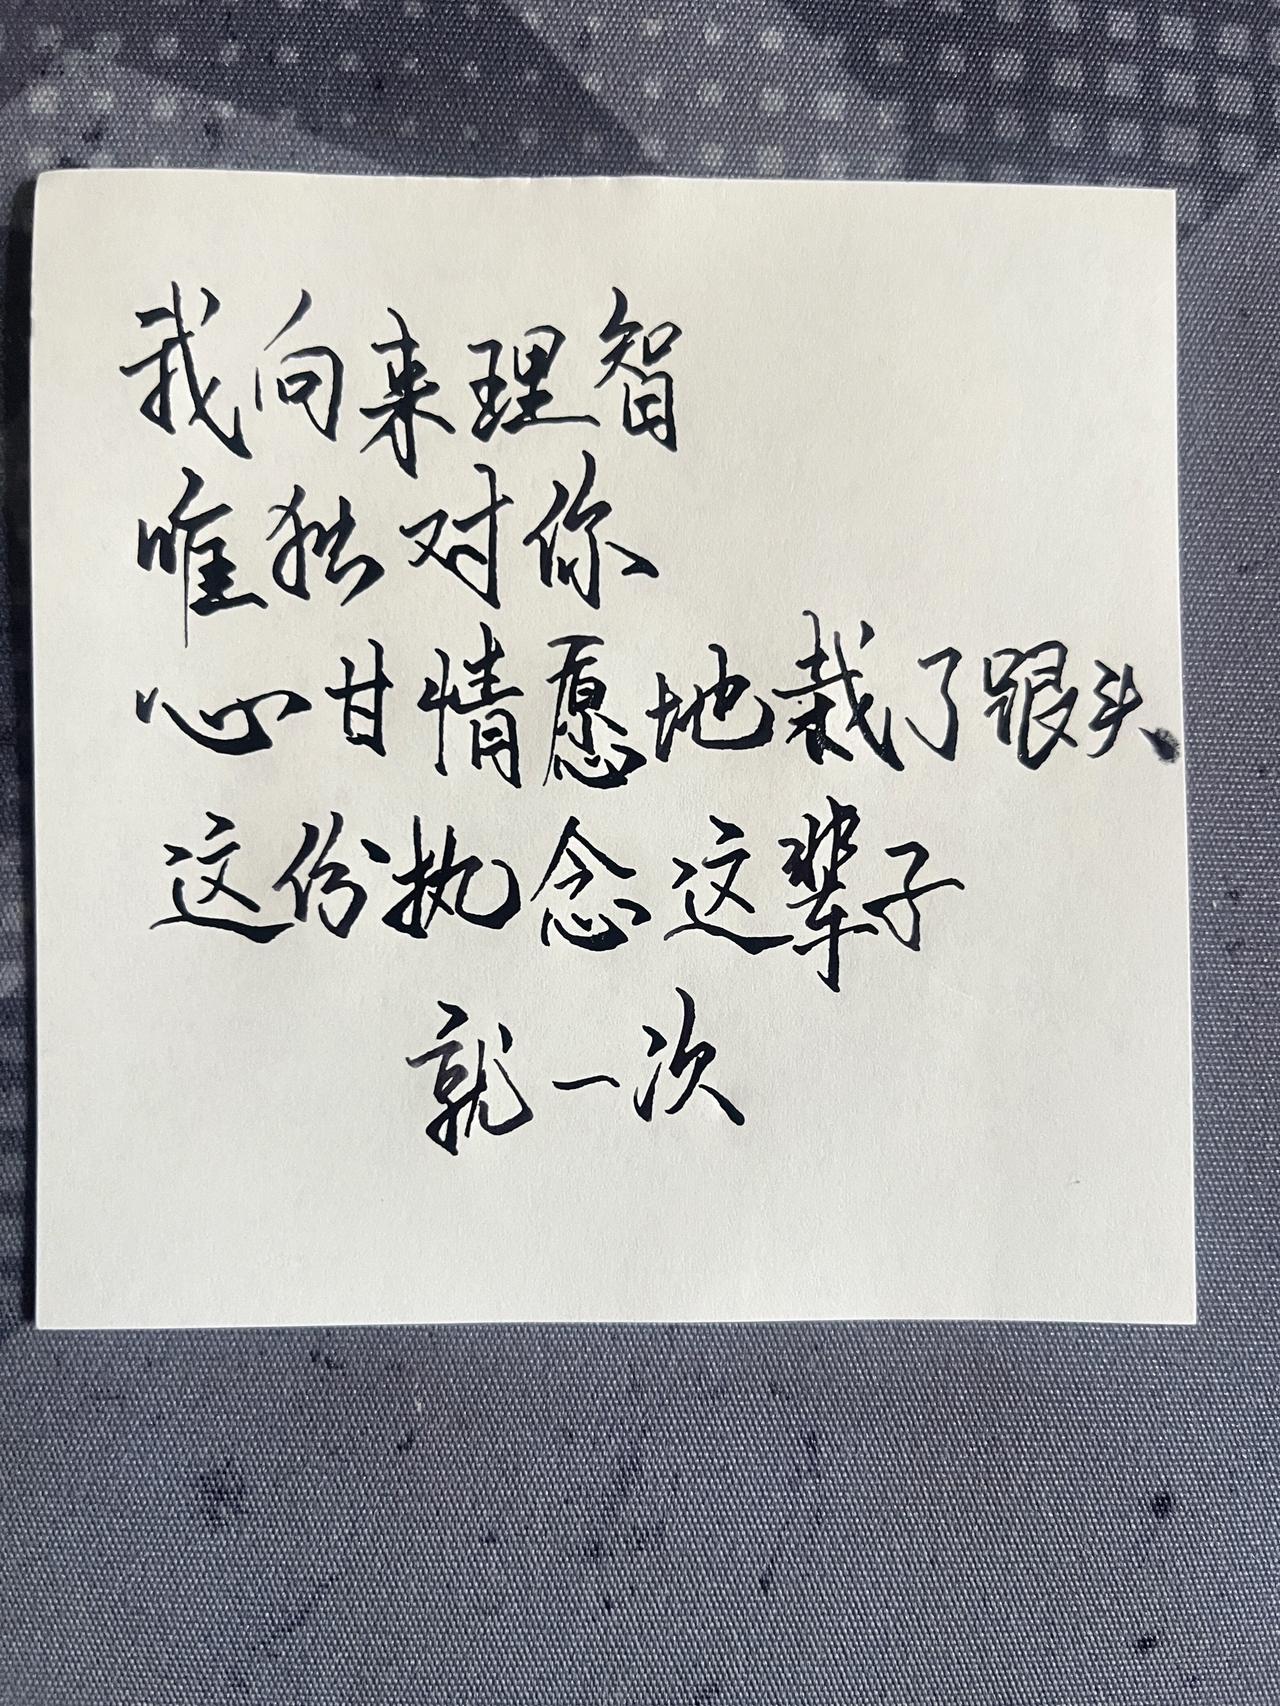 我向来理智
唯独对你
心甘情愿地栽了跟头
这份执念这辈子
就一次